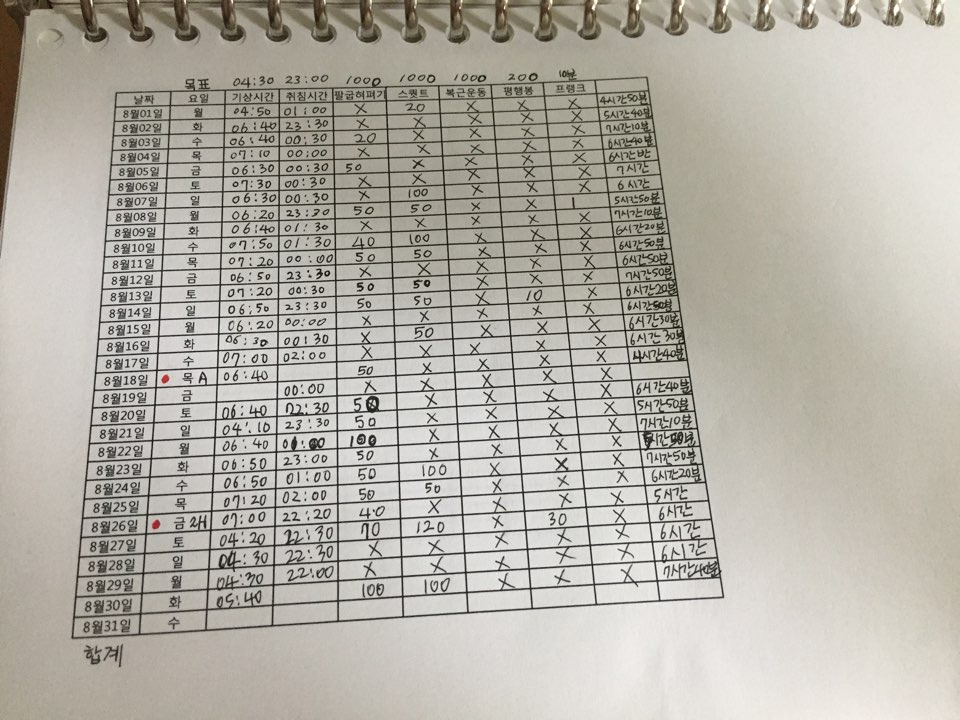 목표 04:30 23:00 1000 1000 1000 200 10분
날짜 요일 기상시간 취침시간 팔굽혀펴기 스쿼트 복근운동 평행봉 프랭크
8월01일 월 04:50 01:00 X 20 X X X 4시간50분
8월02일 화 06:40 23:30 X X X X X 5시간40분
8월03일 수 06:40 00:30 20 X X X X 7시간10분
8월04일 목 07:10 00:00 X X X X X 6시간40분
8월05일 금 06:30 00:30 50 X X X X 6시간반
8월06일 토 07:30 00:30 X X X X X 7시간
8월07일 일 06:30 00:30 X 100 X X X 6시간
8월08일 월 06:20 23:30 50 50 X X 1 5시간50분
8월09일 화 06:40 01:30 X X X X X 7시간10분
8월10일 수 07:50 01:30 40 100 X X X 6시간20분
8월11일 목 07:20 00:00 50 50 X X X 6시간50분
8월12일 금 06:50 23:30 X X X X X 6시간50분
8월13일 토 07:20 00:30 50 50 X X X 7시간50분
8월14일 일 06:50 23:30 50 50 X 10 X 6시간20분
8월15일 월 06:20 00:00 X X X X X 6시간50분
8월16일 화 06:30 00:30 X 50 X X X 6시간30분
8월17일 수 07:00 02:00 X X X X X 6시간30분
8월18일 목 A 06:40 50 X X X X 4시간40분
8월19일 금 00:00 X X X X X
8월20일 토 06:40 22:30 50 X X X X 6시간40분
8월21일 일 04:10 23:30 50 X X X X 5시간50분
8월22일 월 06:40 01:00 100 X X X X 7시간10분
8월23일 화 06:50 23:00 50 X X X X
8월24일 수 06:50 01:00 50 100 X X X 7시간50분
8월25일 목 07:20 02:00 50 50 X X X 6시간20분
8월26일 금 2H 07:00 22:20 40 X X X X 5시간
8월27일 토 04:20 22:30 70 120 X 30 X 6시간
8월28일 일 04:30 22:30 X X X X X 6시간
8월29일 월 04:30 22:00 X X X X X 6시간
8월30일 화 05:40 100 100 X X X 7시간40분
8월31일 수
합계